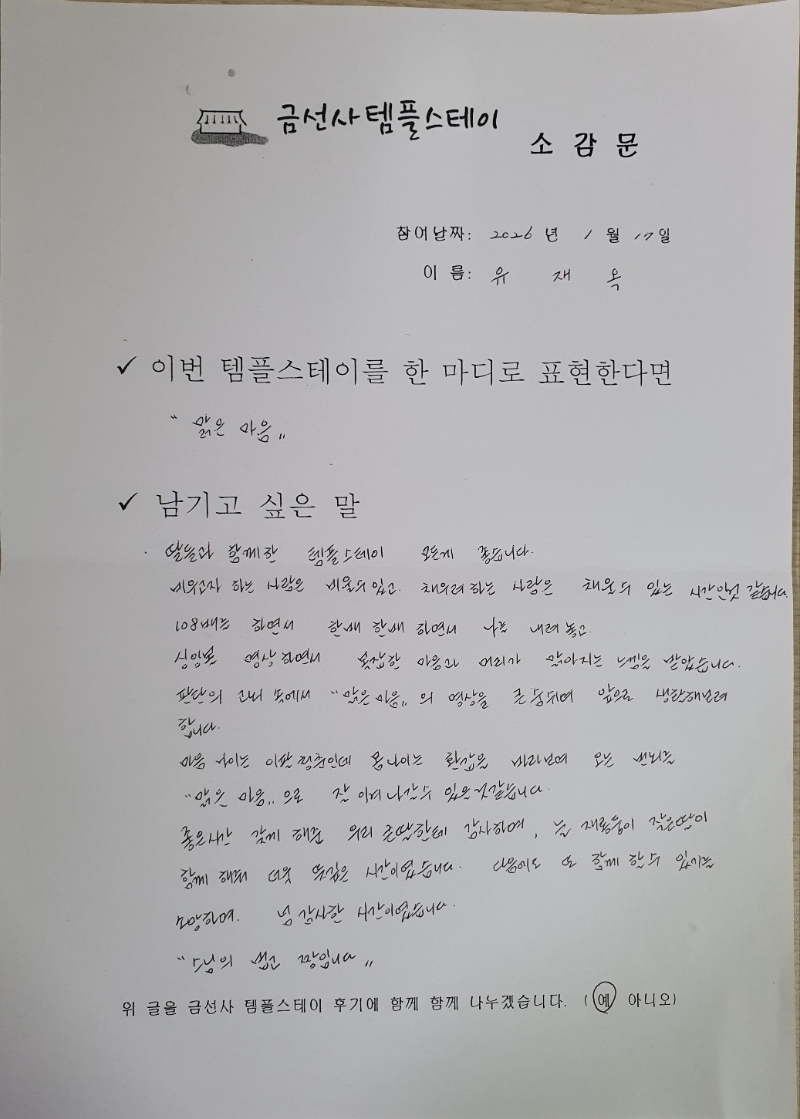 금선사템플스테이
소 감 문
참여날짜: 2026 년 1 월 17일
이 름: 유 재 옥
✓ 이번 템플스테이를 한 마디로 표현한다면
“ 맑은 마음 „
✓ 남기고 싶은 말
. 딸들과 함께한 템플스테이 모든게 좋습니다.
비우고자 하는 사람은 비울수있고. 채우려 하는 사람은 채울수 있는 시간인것 같습니다.
108배를 하면서 한배 한배 하면서 나를 내려 놓고
싱잉볼 명상하면서 복잡한 마음과 머리가 맑아지는 느낌을 받았습니다.
판단의 고뇌 속에서 “맑은마음„ 의 명상을 큰 앞으로
합니다.
마음 나이는 이팔청춘인데 몸나이는 환갑을 바라보며 오는 번뇌를
“맑은 마음„ 으로 잘 이겨나갈수 있을것같습니다.
좋은시간 갖게 해준 우리 큰딸한테 감사하며, 늘 작은딸이
함께 해줘 더욱 뜻깊은 시간이였습니다. 다음에도 또 함께 할수 있기를
소망하며. 넘 감사한 시간이였습니다.
“스님의 법고 짱입니다„
위 글을 금선사 템플스테이 후기에 함께 함께 나누겠습니다. ( 예 아니오)